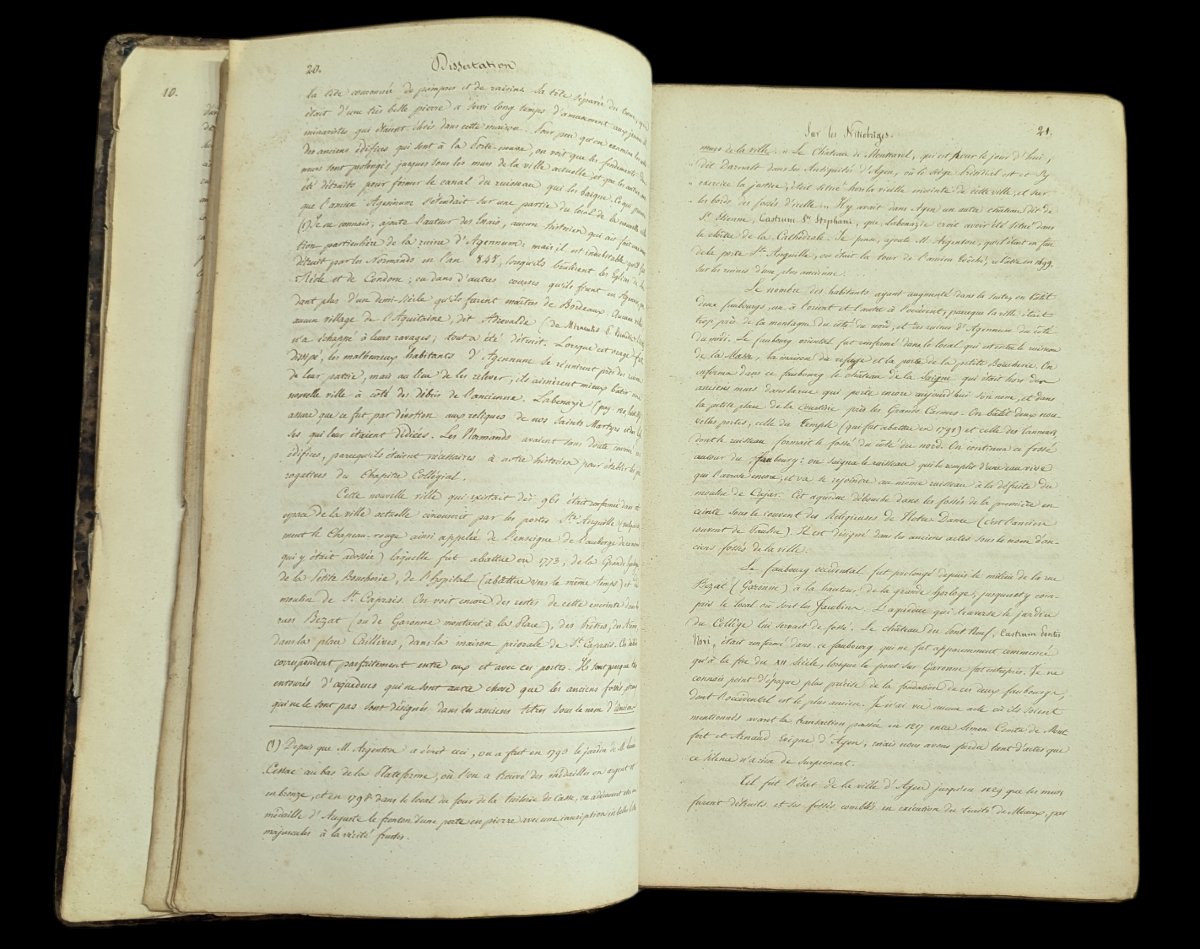 10.
20.
Dissertation
la tête couronnée de pampres et de raisins. La tête séparée du tronc, qui
était d'une très belle pierre a servi long temps d'amusement aux jeunes
minoristes qui étaient élevés dans cette maison. Pour peu qu'on examine les
des anciens édifices qui sont à la Porte-neuve, on voit que les fondements des
murs sont prolongés jusques sous les murs de la ville actuelle et que les autres
été détruits pour former le canal du ruisseau qui les baigne. Ce qui prouve
que l'ancien Agennum s'étendait sur une partie du local de la nouvelle
(1) Je ne connais, ajoute l'auteur des Essais, aucun historien qui ait fait
tion particulière de la ruine d'Agennum; mais il est indubitable qu'il
détruit par les Normands en l'an 848, lorsqu'ils brûlèrent les Eglises de
et de Condom; ou dans d'autres courses qu'ils firent en
dant plus d'un demi-siècle qu'ils furent maîtres de Bordeaux. Aucune ville
aucun village de l'Aquitaine, dit Adrevalde (de Miraculis S.
n'a échappé à leurs ravages; tout a été détruit. Lorsque cet orage fut
dissipé, les malheureux habitants d'Agennum se réunirent près des ruines
de leur patrie, mais au lieu de les relever, ils aimèrent mieux bâtir une
nouvelle ville à côté des débris de l'ancienne. Labenazie (pag.
assure que ce fut par dévotion aux reliques de nos Saints Martyrs et aux
ses qui leur étaient dédiées. Les Normands avaient sans doute
édifices, parcequ'ils étaient nécessaires à notre historien pour établir les
rogatives du Chapitre Collégial.
Cette nouvelle ville qui existait dès 961 était renfermée dans
espace de la ville actuelle circonscrit par les portes Ste Anguille
ment le Chapeau-rouge ainsi appelée de l'enseigne de l'auberge
qui y était adossée) laquelle fut abattue en 1773, de la Grande
de la Petite Boucherie, de l'hôpital (abattue vers le même temps) et du
moulin de St. Caprais. On voit encore des restes de cette enceinte dans
rues Bézat (ou de Garonne montant à la Place), des
dans la place Caillives, dans la maison priorale de St. Caprais. Ces
corespondent parfaitement entre eux et avec ces portes. Ils sont presque tous
entourés d'aquéducs qui ne sont autre chose que les anciens fossés, ceux
qui ne le sont pas sont désignés dans les anciens titres sous le nom d'anciens
(1) Depuis que M. Argenton a écrit ceci, on a fait en 1793 le jardin de M.
Cessac au bas de la Plateforme, où l'on a trouvé des médailles en argent et
en bronze, et en 1798 dans le local du four de la tuilerie de Casse, on a découvert une
médaille d'Auguste le fronton d'une porte en pierre avec une inscription en
majuscules à la vérité frustes.
Sur les Nitiobriges.
21.
murs de la ville. "Le Château de Montravel, qui est pour le jour d'hui,
" dit Darnalt dans ses Antiquités d'Agen, où le Siège Présidial est et s'y
" exercice la justice, était situé hors la vieille enceinte de cette ville, et sur
" les bords des fossés d'icelle. Il y avait dans Agen un autre château dit de
St. Etienne, Castrum Sti Stephani, que Labenazie croit avoir été situé dans
le cloître de la Cathédrale. Je pense, ajoute M. Argenton, qu'il était en face
de la porte Ste Anguille, où était la tour de l'ancien Evêché, rebâtie en 1499
sur les ruines d'une plus ancienne.
Le nombre des habitants ayant augmenté dans la suite, on bâtit
deux faubourgs, un à l'orient et l'autre à l'occident, parceque la ville était
trop près de la montagne du côté du nord, et des ruines d'Agennum du côté
du midi. Le faubourg oriental fut renfermé dans le local qui est entre le ruisseau
de la Masse, la maison du refuge et la porte de la petite Boucherie. On
enferma dans ce faubourg le château de la Saigne qui était hors des
anciens murs dans la rue qui porte encore aujourd'hui son nom, et dans
la petite place de la Cousière près les Grands Carmes. On bâtit deux nou
velles portes, celle du Temple (qui fut abattue en 1791) et celle des Tanneurs
dont le ruisseau formait le fossé du côté du nord. On continua ce fossé
autour du faubourg; on saigna le ruisseau qui le remplit d'une eau vive
qui l'arrose encore, et va se rejoindre au même ruisseau à la défuite du
moulin de Cajar. Cet aquéduc débouche dans les fossés de la première en
ceinte sous le couvent des Religieuses de Notre-Dame (c'est l'ancien
couvent de Paulin). Il est désigné dans les anciens actes sous le nom d'an
ciens fossés de la ville.
Le faubourg occidental fut prolongé depuis le milieu de la rue
Bézat (Garonne) à la hauteur de la grande horloge, jusques et y com
pris le local où sont les Jacobins. L'aquéduc qui traverse le jardin
du Collège lui servait de fossé. Le château du Pont Neuf, Castrum Pontis
Novi, était renfermé dans ce faubourg qui ne fut apparemment commencé
qu'à la fin du XII siècle, lorsque le pont sur Garonne fut entrepris. Je ne
connais point d'époque plus précise de la fondation de ces deux faubourgs
dont l'occidental est le plus ancien. Je n'ai vu aucun acte où ils soient
mentionnés avant la transaction passée en 1217 entre Simon Comte de Mont
fort et Arnaud Evêque d'Agen, mais nous avons perdu tant d'actes que
ce silence n'a rien de surprenant.
Tel fut l'état de la ville d'Agen jusqu'en 1229 que les murs
furent détruits et ses fossés comblés en exécution du traité de Meaux, par